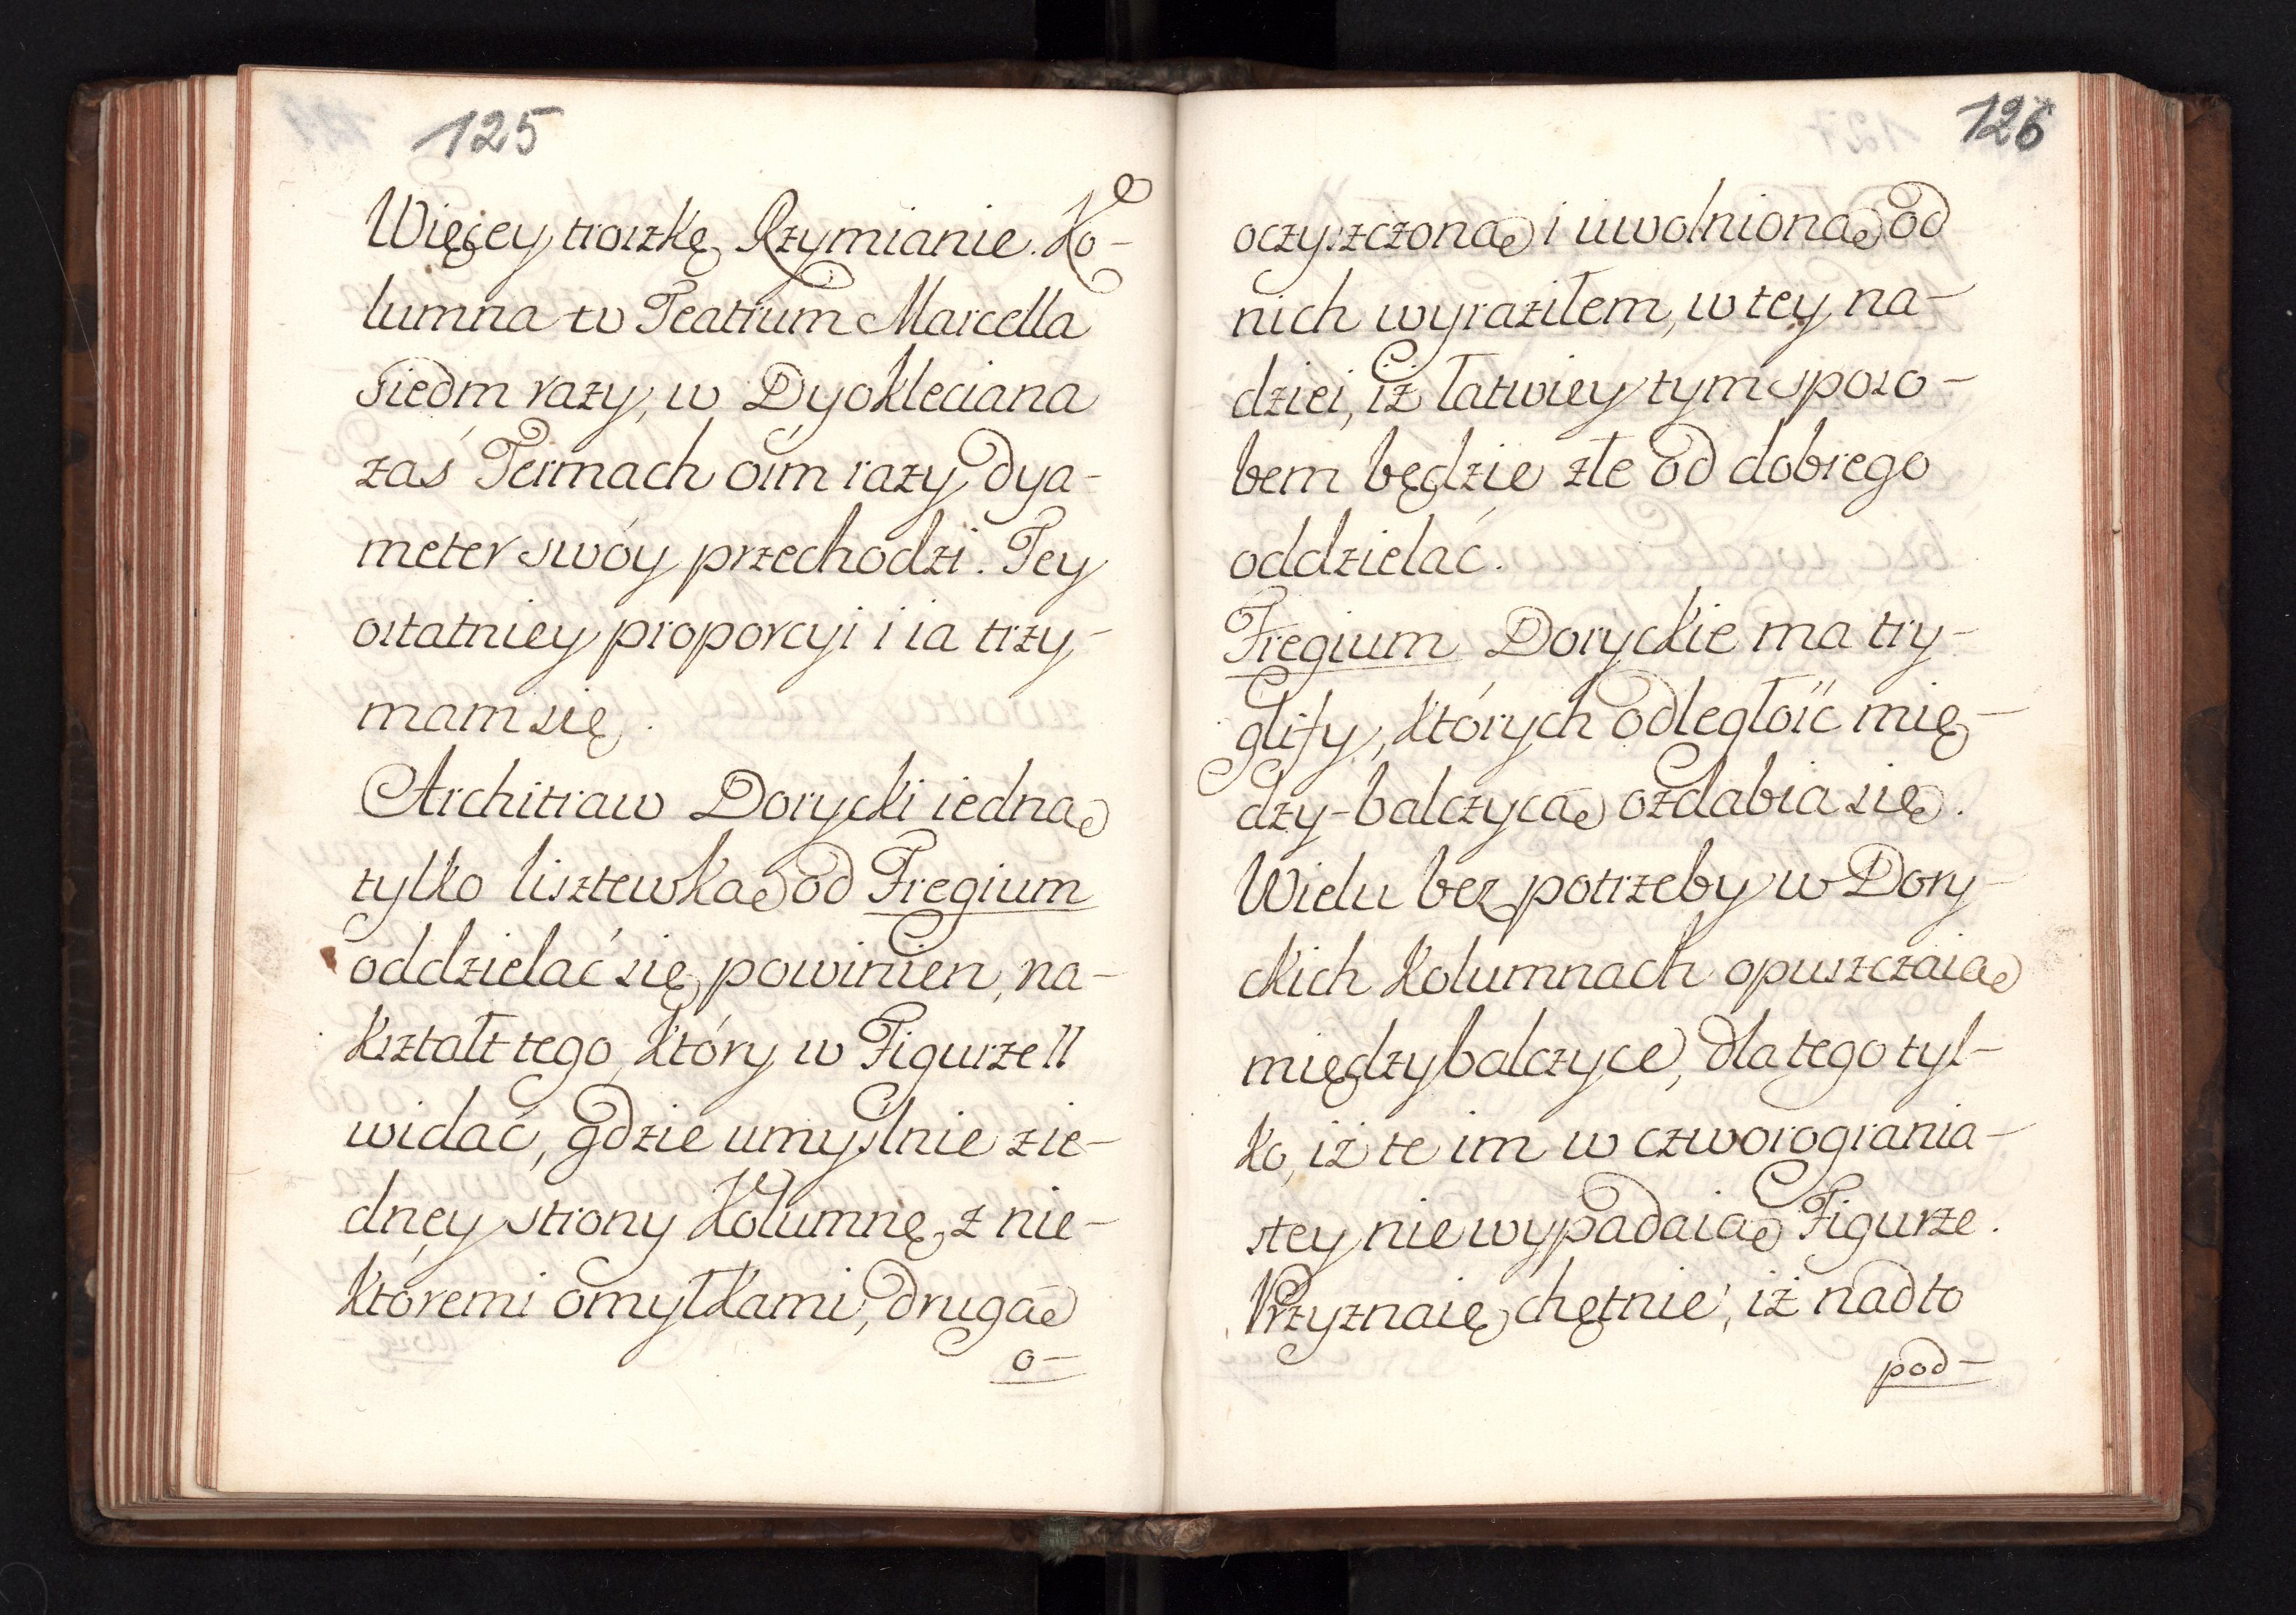 125
Więcey troszkę Rzymianie. Ko-
lumna w Teatrum Marcella
siedm razy, w Dyokleciana
zaś Termach ośm razy dya-
meter swóy przechodzi. Tey
ostatniey proporcyi i ia trzy-
mam się.
Architraw Dorycki iedną
tylko lisztewką od Fregium
oddzielać się powinien, na-
kształt tego, który w Figurze II
widać, gdzie umyślnie z ie-
dney strony Kolumnę z nie-
któremi omyłkami, drugą
o-
126
oczyszczoną i uwolnioną od
nich wyraziłem, w tey na-
dziei, iż łatwiey tym sposo-
bem będzie złe od dobrego
oddzielać.
Fregium Doryckie ma try-
glify, których odległość mię-
dzy-balczycą ozdabia się.
Wielu bez potrzeby w Dory-
ckich Kolumnach opuszczaią
międzybalczyce, dla tego tyl-
ko, iż te im w czworograni a-
stey nie wypadaią Figurze.
Przyznaię chętnie, iż nadto
pod-